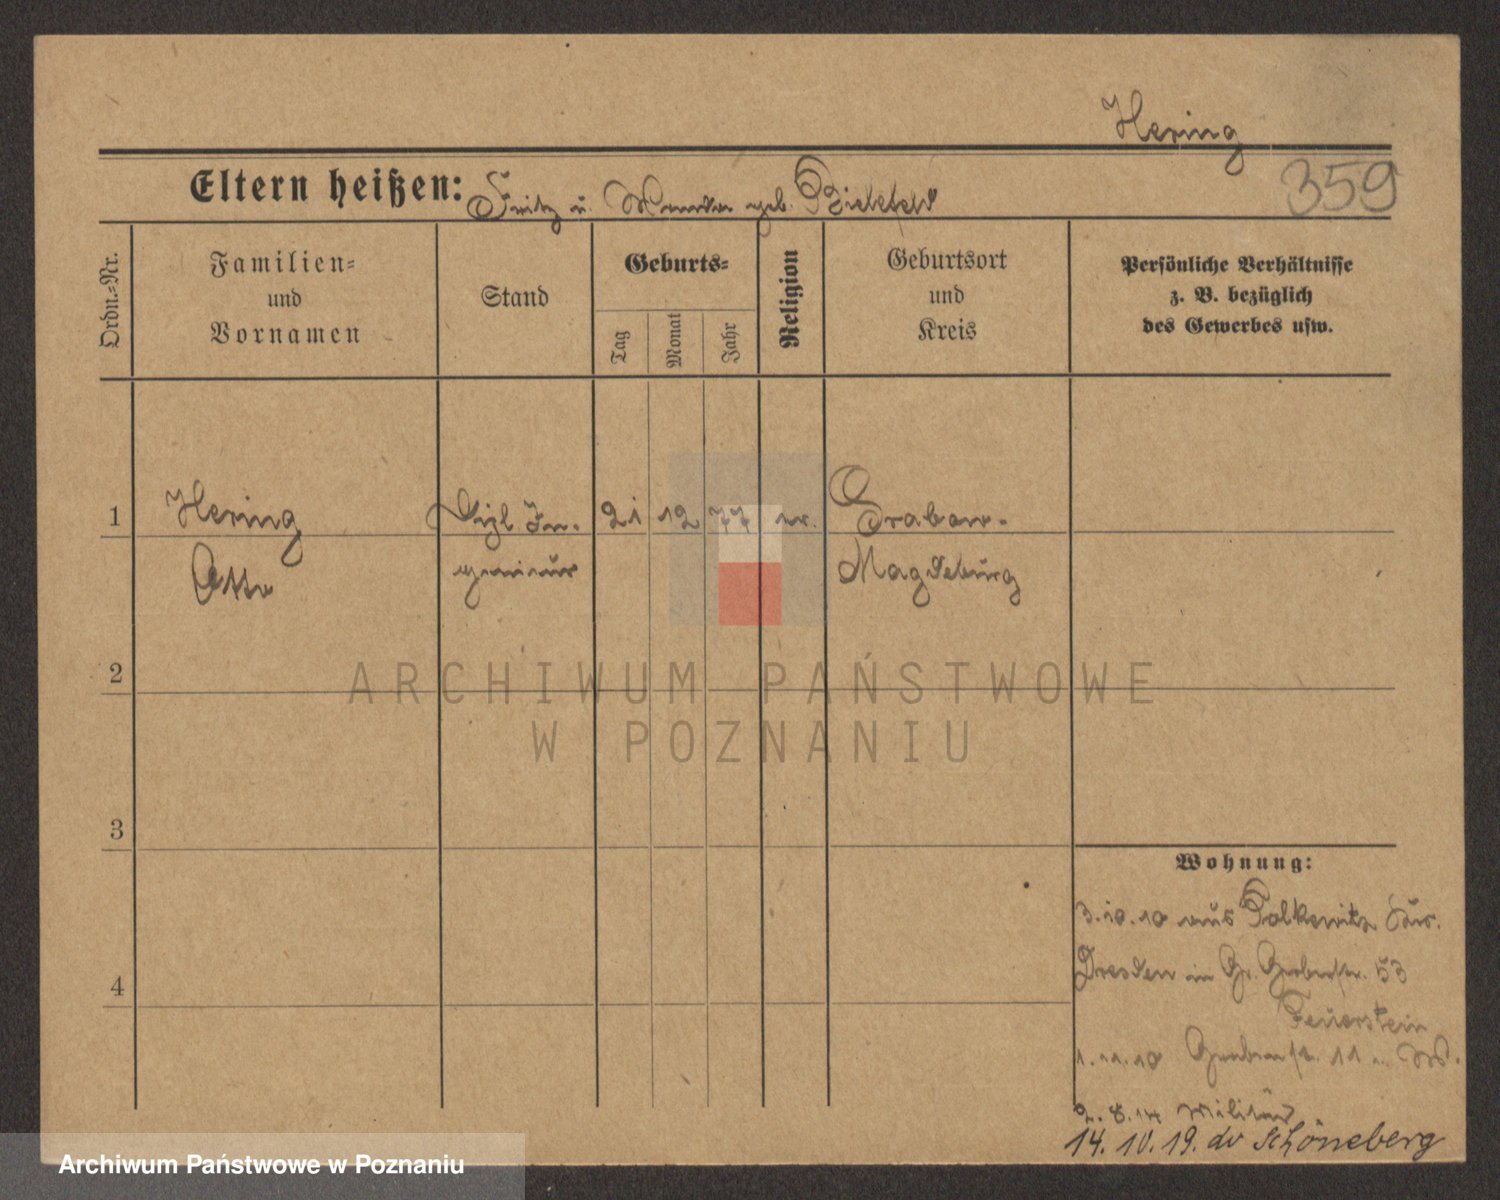 Hering
359
Eltern heißen: Fritz u. geb. Bielefeld
Ordn.=Nr.
Familien=
und
Vornamen
Stand
Geburts=
Tag
Monat
Jahr
Religion
Geburtsort
und
Kreis
Persönliche Verhältnisse
z. B. bezüglich
des Gewerbes usw.
1 Hering Dipl. In- 21 12 77 Grabow.
Otto genieur Magdeburg
2
3
4
Wohnung:
3.10.10 aus Tolkewitz
Dresden in Gr. Gerberstr. 53
Feuerstein
1.11.10 11
2.8.14 Militär
14.10.19. Schöneberg
ARCHIWUM PAŃSTWOWE
W POZNANIU
Archiwum Państwowe w Poznaniu